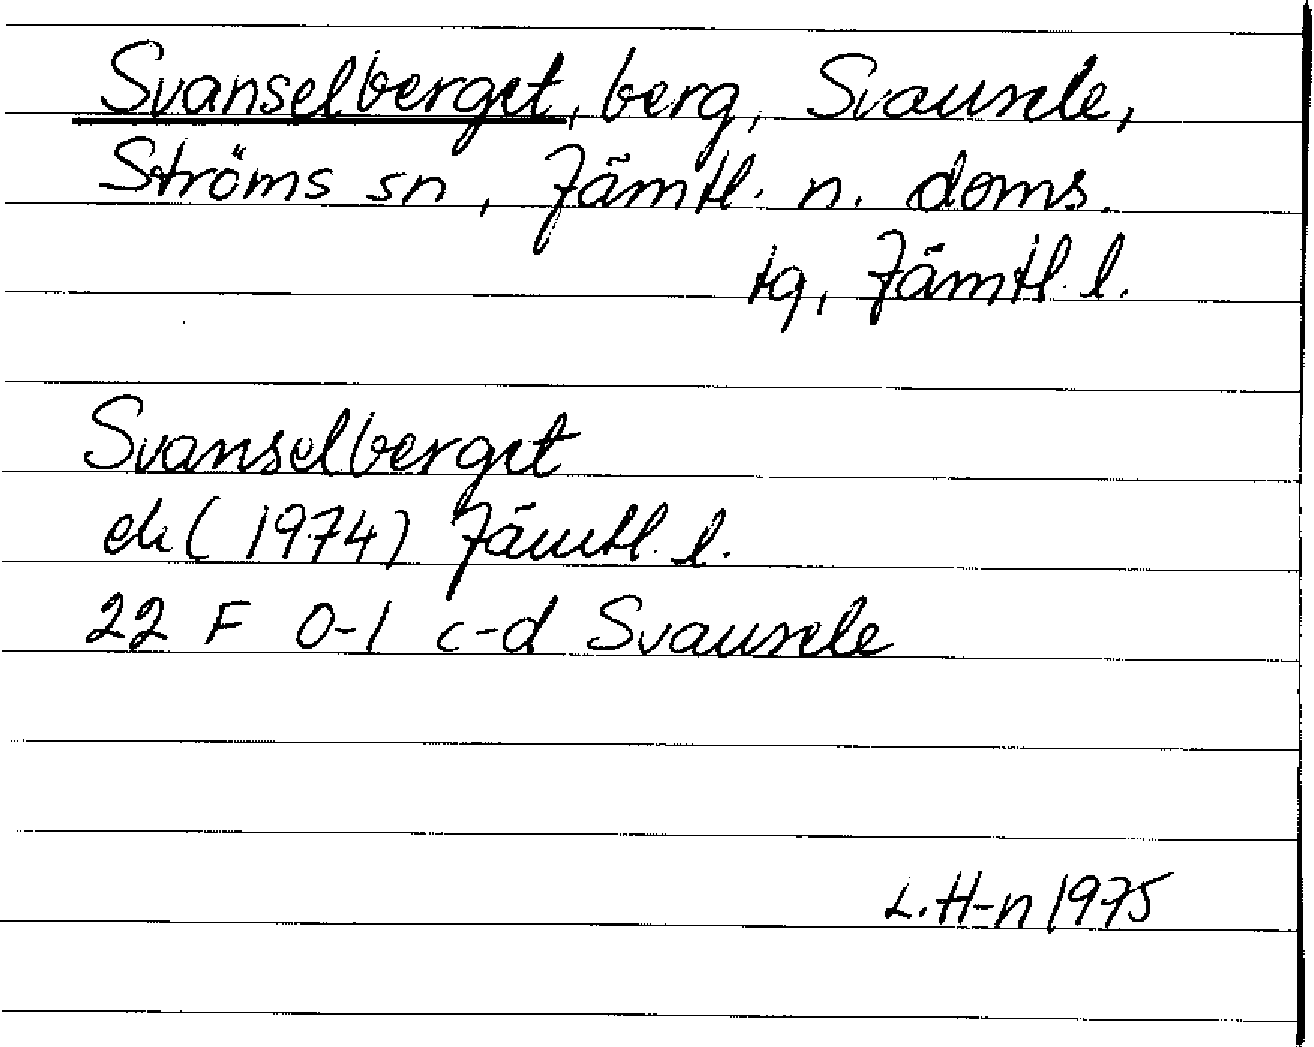 Svanselberget, berg, Svansele,
Ströms sn, Jämtl. n. doms.
tg, Jämtl. l.
Svanselberget
ek (1974) Jämtl. l.
22 F 0-1 c-d Svansele
L. H-n 1975